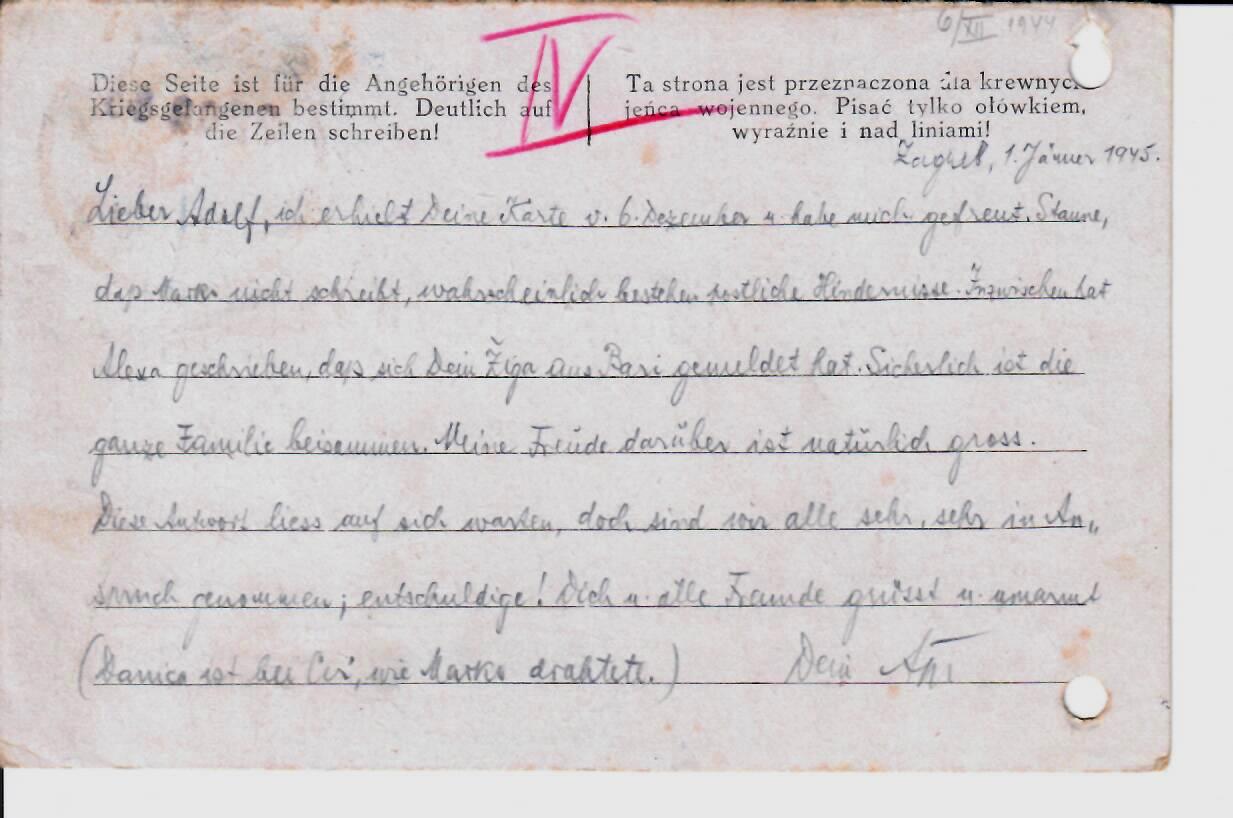 6/XII 1944
IV
Diese Seite ist für die Angehörigen des
Kriegsgefangenen bestimmt. Deutlich auf
die Zeilen schreiben!
Ta strona jest przeznaczona dla krewnych
jeńca wojennego. Pisać tylko ołówkiem,
wyraźnie i nad liniami!
Zagreb, 1. Jänner 1945.
Lieber Adolf, ich erhielt Deine Karte v. 6. Dezember u. habe mich gefreut. Staune,
daß Marko nicht schreibt, wahrscheinlich bestehen postliche Hindernisse. Inzwischen hat
Alexa geschrieben, daß sich Dein Žiga aus Bari gemeldet hat. Sicherlich ist die
ganze Familie beisammen. Meine Freude darüber ist natürlich gross.
Diese Antwort liess auf sich warten, doch sind wir alle sehr, sehr in An„
spruch genommen; entschuldige! Dich u. alle Freunde grüsst u. umarmt
(Danica ist bei, wie Marko drahtete.) Dein